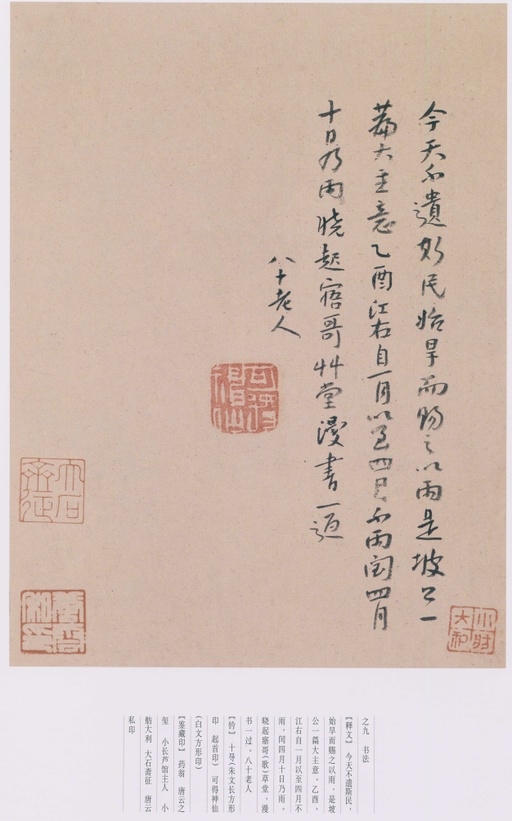 今天不遗斯民始旱而赐之以雨是坡公一
篇大主意乙酉江右自一月以至四月不雨闰四月
十日乃雨晓起寤哥艸堂漫书一过
八十老人
可得神仙
大石斋征
唐云私印
小财大和
之九 书法
【释文】 今天不遗斯民，
始旱而赐之以雨，是坡
公一篇大主意。乙酉，
江右自一月以至四月不
雨，闰四月十日乃雨，
晓起寤哥（歌）草堂，漫
书一过。八十老人
【钤】 十得（朱文长方形
印 起首印） 可得神仙
（白文方形印）
【鉴藏印】 药翁 唐云之
玺 小长芦馆主人 小
舫大利 大石斋征 唐云
私印